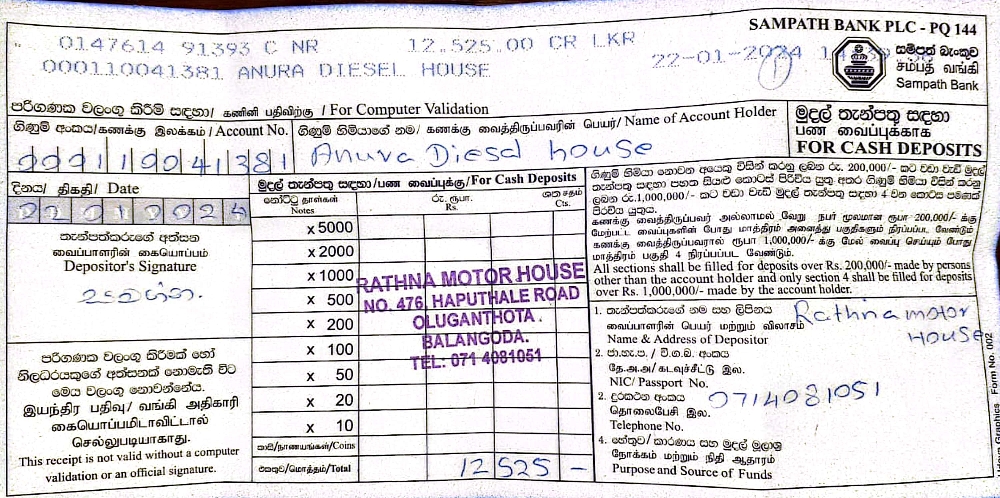 SAMPATH BANK PLC - PQ 144
0147614 91393 C NR 12.525.00 CR LKR 22-01-2024
000110041381 ANURA DIESEL HOUSE
සම්පත් බැංකුව
சம்பத் வங்கி
Sampath Bank
පරිගණක වලංගු කිරීම් සඳහා/ கணினி பதிவிற்கு / For Computer Validation
ගිණුම් අංකය/கணக்கு இலக்கம் / Account No. ගිණුම් හිමියාගේ නම/ கணக்கு வைத்திருப்பவரின் பெயர்/ Name of Account Holder
000110041381 Anura Diesel house
මුදල් තැන්පතු සඳහා
பண வைப்புக்காக
FOR CASH DEPOSITS
දිනය/ திகதி/ Date
22012024
තැන්පත්කරුගේ අත්සන
வைப்பாளரின் கையொப்பம்
Depositor's Signature
පරිගණක වලංගු කිරීමක් හෝ
නිලධරයකුගේ අත්සනක් නොමැති විට
මෙය වලංගු නොවන්නේය.
இயந்திர பதிவு/ வங்கி அதிகாரி
கையொப்பமிடாவிட்டால்
செல்லுபடியாகாது.
This receipt is not valid without a computer
validation or an official signature.
මුදල් තැන්පතු සඳහා/பண வைப்புக்கு/For Cash Deposits
නෝට්ටු தாள்கள் Notes රු. ரூபா. Rs. ශත சதம் Cts.
x 5000
x 2000
x 1000
x 500
x 200
x 100
x 50
x 20
x 10
කාසි/நாணயங்கள்/Coins
එකතුව/மொத்தம்/Total 12525 -
RATHNA MOTOR HOUSE
NO. 476, HAPUTHALE ROAD
OLUGANTHOTA.
BALANGODA.
TEL: 071 4081051
ගිණුම් හිමියා නොවන අයෙකු විසින් කරනු ලබන රු. 200,000/- කට වඩා වැඩි මුදල්
තැන්පතු සඳහා පහත සියළු කොටස් පිරවිය යුතු අතර ගිණුම් හිමියා විසින් කරනු
ලබන රු.1,000,000/- කට වඩා වැඩි මුදල් තැන්පතු සඳහා 4 වන කොටස පමණක්
පිරවිය යුතුය.
கணக்கு வைத்திருப்பவர் அல்லாமல் வேறு நபர் மூலமான ரூபா 200,000/- க்கு
மேற்பட்ட வைப்புகளின் போது மாத்திரம் அனைத்து பகுதிகளும் நிரப்பப்பட வேண்டும்
கணக்கு வைத்திருப்பவரால் ரூபா 1,000,000/- க்கு மேல் வைப்பு செய்யும் போது
மாத்திரம் பகுதி 4 நிரப்பப்பட வேண்டும்.
All sections shall be filled for deposits over Rs. 200,000/- made by persons
other than the account holder and only section 4 shall be filled for deposits
over Rs. 1,000,000/- made by the account holder.
1. තැන්පත්කරුගේ නම සහ ලිපිනය
வைப்பாளரின் பெயர் மற்றும் விலாசம்
Name & Address of Depositor
Rathna motor
House
2. ජා.හැ.ප. / වි.ග.බ. අංකය
தே.அ.அ/ கடவுச்சீட்டு இல.
NIC/ Passport No.
2. දුරකථන අංකය
தொலைபேசி இல.
Telephone No.
0714081051
4. හේතුව/ කාරණය සහ මුදල් මූලාශ්‍ර
நோக்கம் மற்றும் நிதி ஆதாரம்
Purpose and Source of Funds
Form No. 002